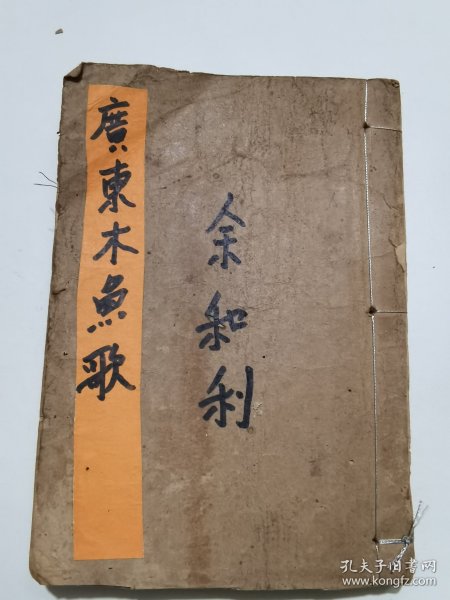 廣東木魚歌
余和利
孔夫子旧书网
www.kongfz.com